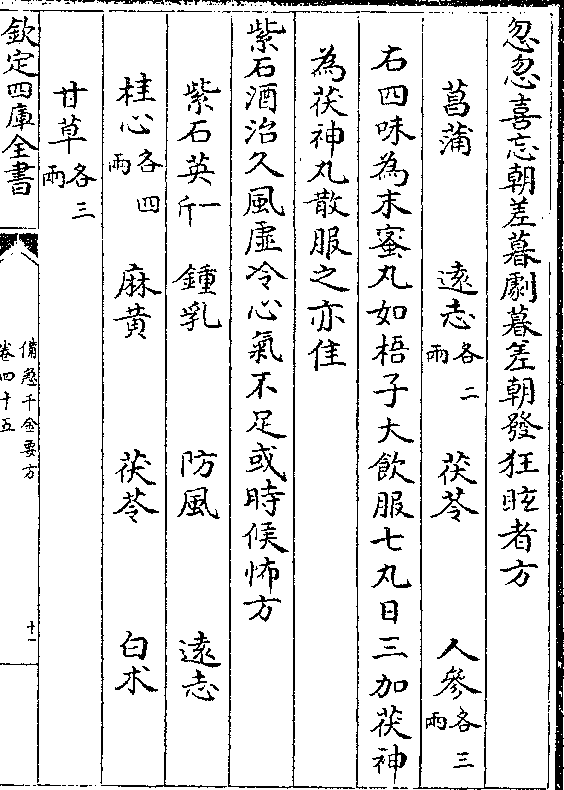 忽忽喜忘朝差暮劇暮差朝發狂眩者方
菖蒲 遠志各二兩 茯苓 人參各三兩
右四味為末蜜丸如梧子大飲服七丸日三加茯神
為茯神丸散服之亦佳
紫石酒治久風虛冷心氣不足或時候怖方
紫石英一斤 鍾乳 防風 遠志
桂心各四兩 麻黄 茯苓 白朮
甘草各三兩
欽定四庫全書
備急千金要方
卷四十五
十二